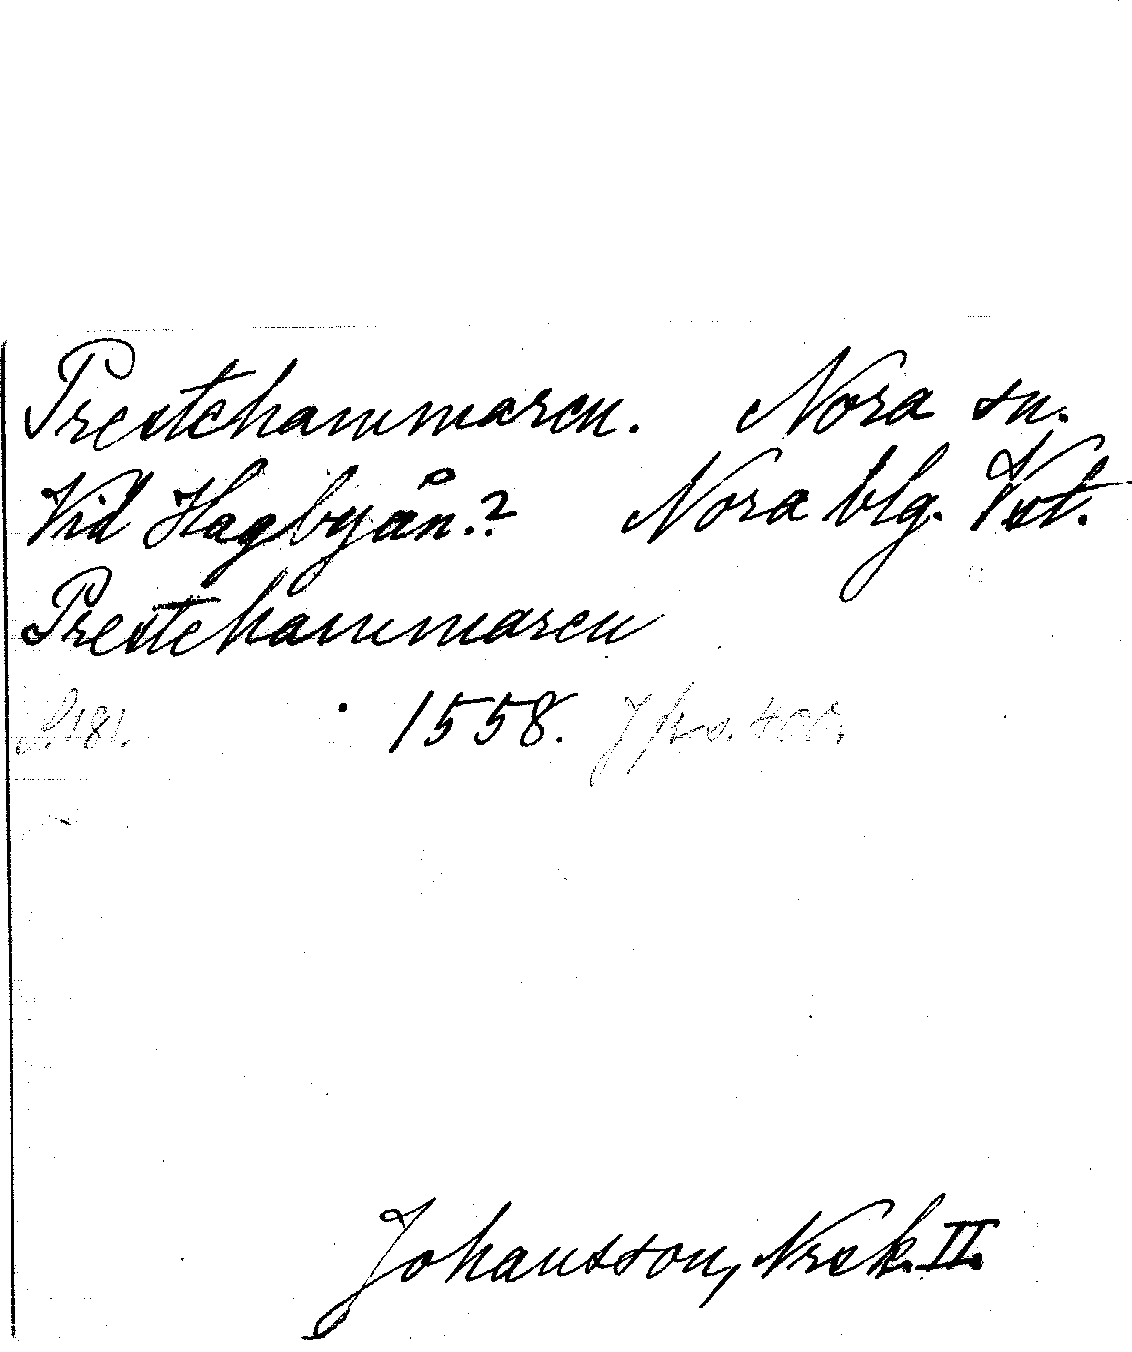 Prestehammaren. Nora sn.
Vid Hagbyån.? Nora blg. Vst.
Prestehammaren
S. 181. 1558. Jfr s. 400.
Johansson, Nrck. II.